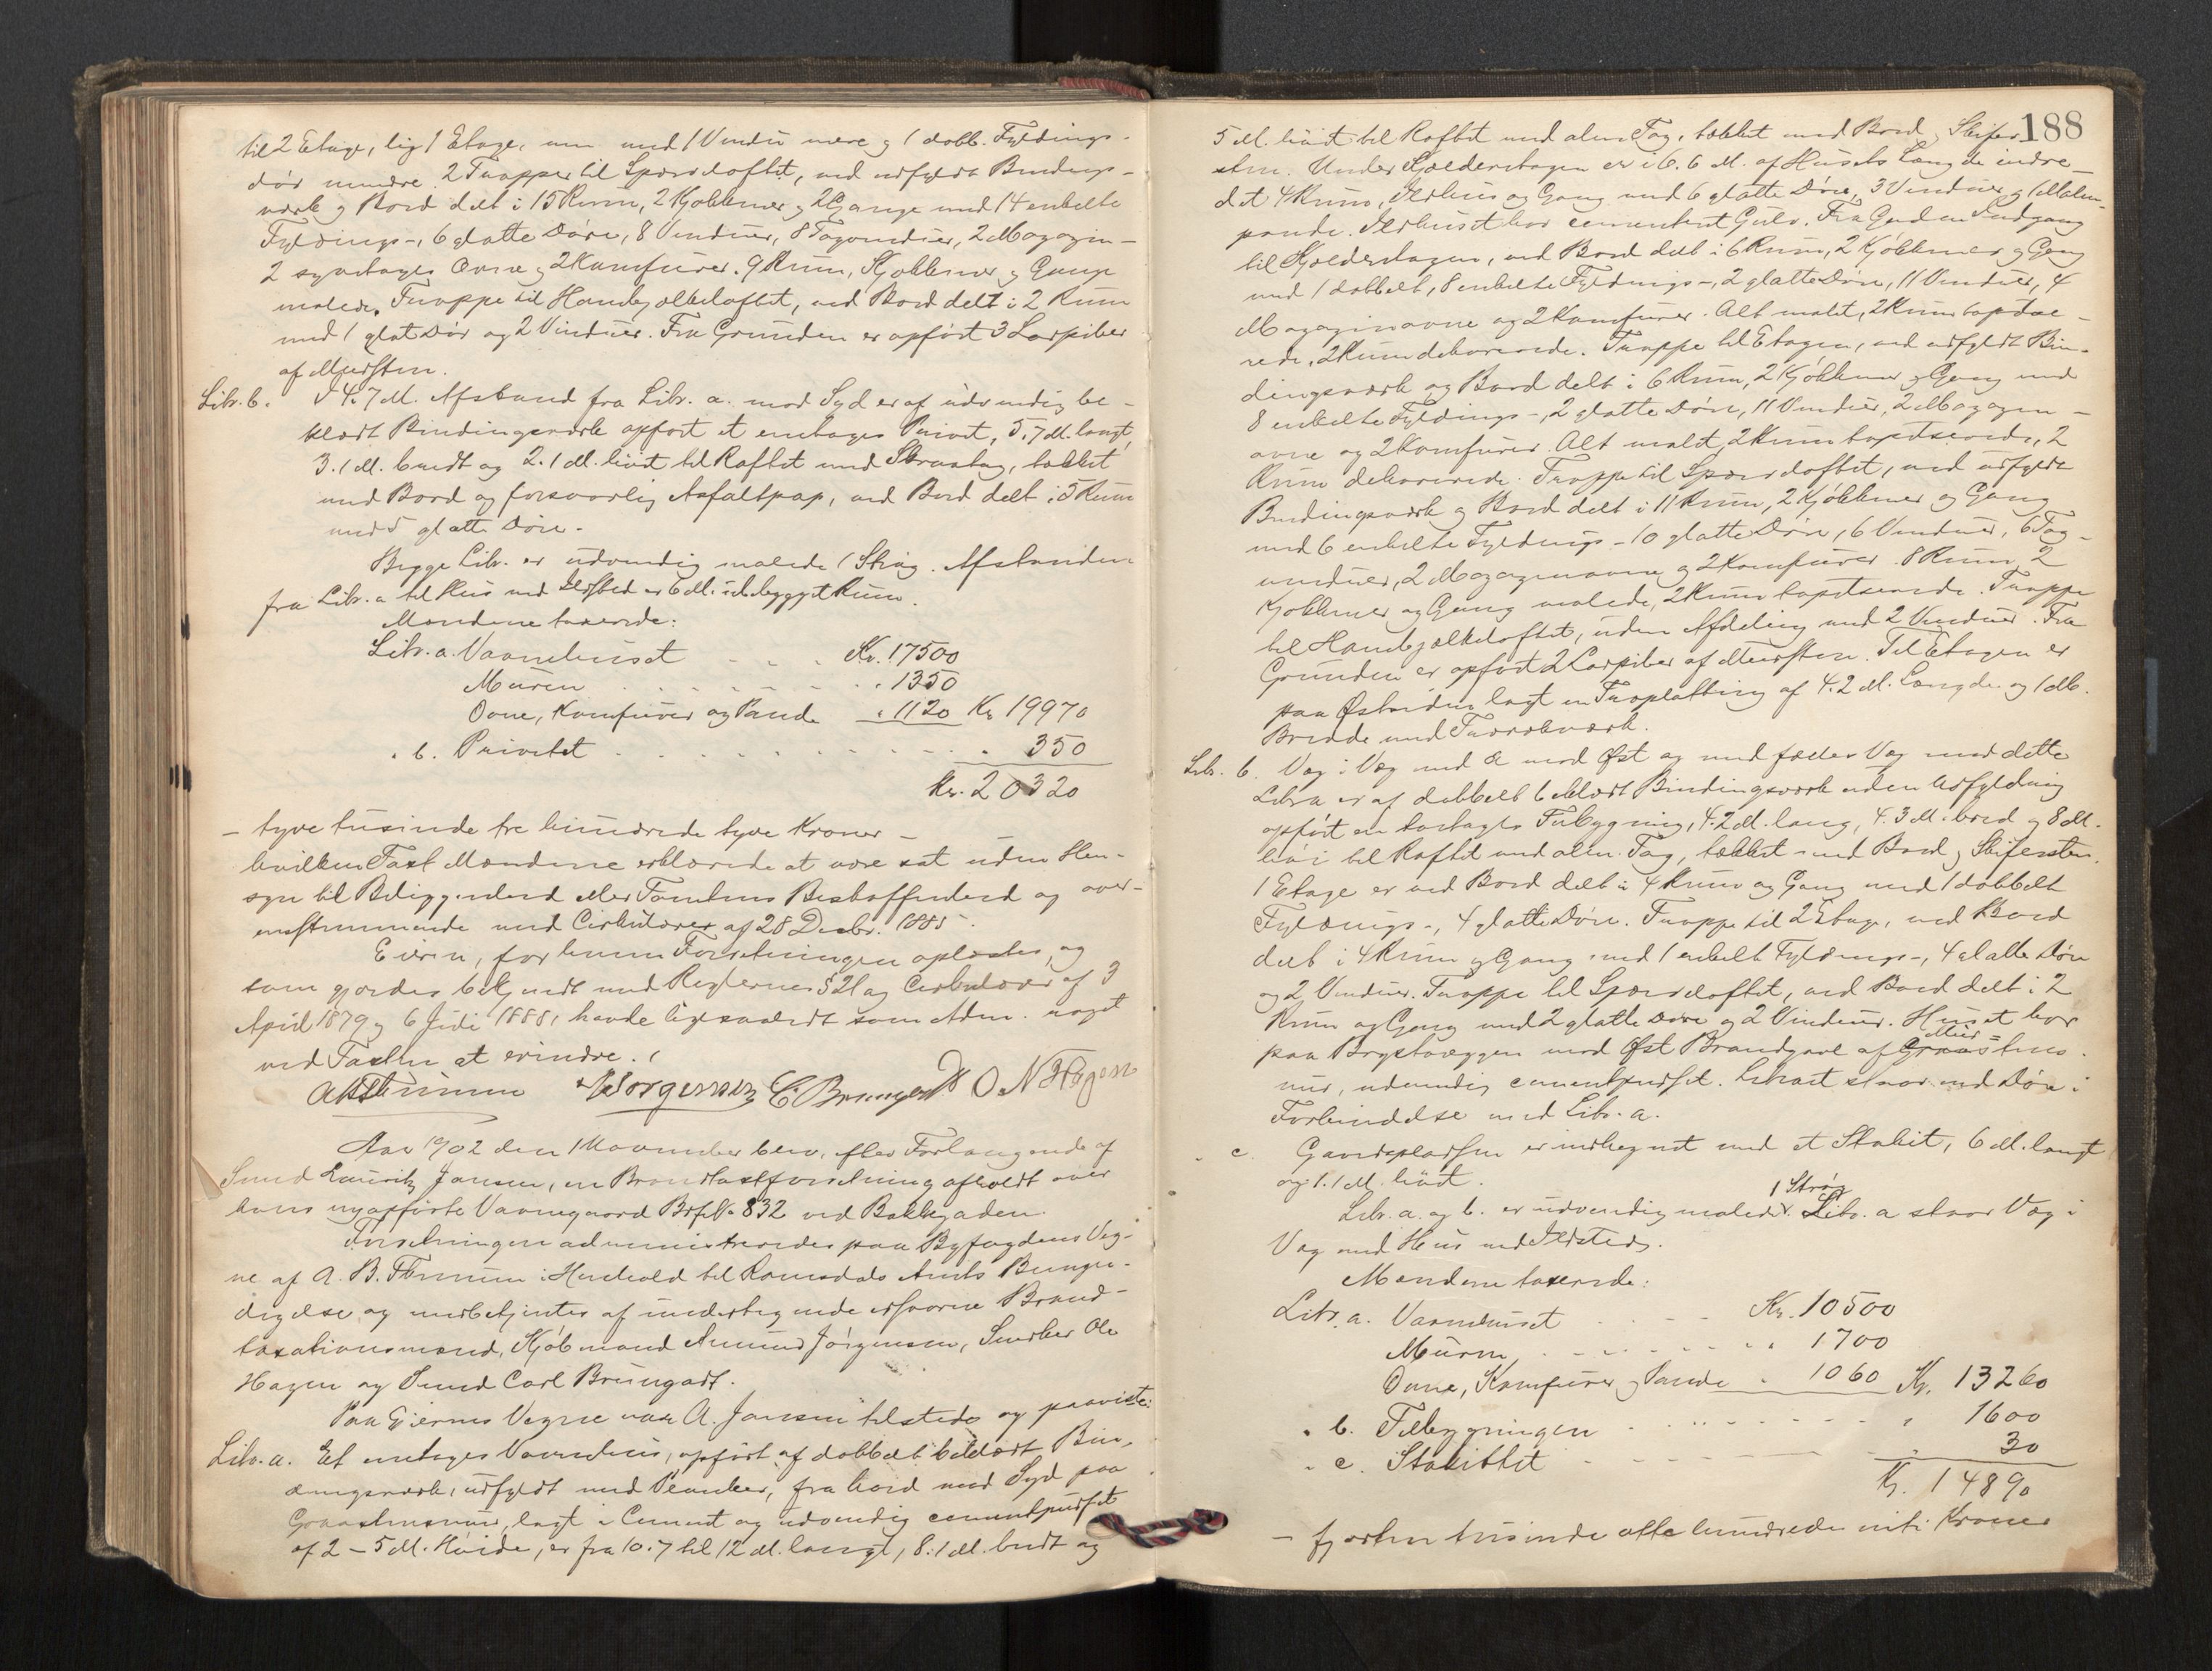 til 2 Etage, lig 1 Etage, men med 1 Vindu mere og 1 dobb. Fyldings-
dør mindre. 2 Trapper til Sperreloftet, ved udfyldt Bindings-
værk og Bord delt i 15 Rum, 2 Kjøkkener og 2 Gange med 14 enkelte
Fyldings-, 6 glatte Døre, 8 Vinduer, 8 Tagvinduer, 2 Magazin-
2 syvetages Ovne og 2 Komfurer. 9 Rum, Kjøkkener og Gange
malede. Trappe til Hanebjelkeloftet, ved Bord delt i 2 Rum
med 1 glat Dør og 2 Vinduer. Fra Grunden er opført 3 Larpiber
af Mursten.
Litr. b. I 4.7 M. Afstand fra Litr. a. mod Syd er af udvendig be-
klædt Bindingsværk opført et enetages Privet, 5.7 M. langt,
3.1 M. bredt og 2.1 M. høit til Raftet med Skraatag, tækket
med Bord og forsvarlig Asfaltpap, ved Bord delt i 5 Rum
med 5 glatte Døre.
Begge Litr. er udvendig malede 1 Strøg. Afstanden
fra Litr. a til Hus med Ildsted er 6 M. ubebygget Rum.
Mændene taxerede:
Litr. a. Vaanehuset Kr. 17500
Muren 1350
Ovne, Komfurer og Pande 1120 Kr 19970
" b. Privetet 350
Kr. 20320
- tyve tusinde tre hundrede tyve Kroner -
hvilken Taxt Mændene erklærede at være sat uden Hen-
syn til Beliggenhed eller Tomtens Beskaffenhed og over-
ensstemmende med Cirkulærer af 28 Decbr. 1885.
Eieren, for hvem Forretningen oplæstes, og
som gjordes bekjendt med Reglernes § 21 og Cirkulærer af 3
April 1879 og 6 Juli 1888, havde ligesaalidt som Adm. noget
ved Taxten at erindre.
AJørgensen C. Brungodt O N Hagen
Aar 1902 den 1 November blev, efter Forlangende af
Smed Lauritz Jansen, en Brandtaxtforretning afholdt over
hans nyopførte Vaanegaard Brfl. No 832 ved Bakkegaden.
Forretningen administreredes paa Byfogdens Veg-
ne af A. B. Thinnm i Henhold til Romsdals Amts Bemyn-
digelse og medbetjentes af undertegnede edsvorne Brand-
taxationsmænd, Kjøbmand Amund Jørgensen, Snedker Ole
Hagen og Smed Carl Brungodt.
Paa Eierens Vegne var A. Jansen tilstede og paaviste:
Litr. a. Et enetages Vaanehus, opført af dobbelt beklædt Bin-
dingsværk, udfyldt med Planker, fra Gaard mod Syd paa
Graastensmur, lagt i Cement og udvendig cementpudset
af 2 - 5 M. Høide, er fra 10.7 til 12 M. langt, 8.1 M. bredt og
188
5 M. høit til Raftet med alm. Tag, tækket med Bord og Skifer-
sten. Under Kjælderetagen er i 6.6 M. af Husets Længde indre-
det 4 Rum, Ildhus og Gang med 6 glatte Døre, 3 Vinduer og 1 Malm-
pande. Ildhuset har cementeret Gulv. Fra Gaarden Indgang
til Kjælderetagen, ved Bord delt i 6 Rum, 2 Kjøkkener og Gang
med 1 dobbelt, 8 enkelte Fyldings-, 2 glatte Døre, 11 Vinduer, 4
Magazinovne og 2 Komfurer. Alt malet, 2 Rum tapetse-
rede, 2 Rum dekorerede. Trappe til Etagen, ved udfyldt Bin-
dingsværk og Bord delt i 6 Rum, 2 Kjøkkener og Gang med
8 enkelte Fyldings-, 2 glatte Døre, 11 Vinduer, 2 Magazin-
ovne og 2 Komfurer. Alt malet, 2 Rum tapetserede, 2
Rum dekorerede. Trappe til Sperreloftet, ved udfyldt
Bindingsværk og Bord delt i 11 Rum, 2 Kjøkkener og Gang
med 6 enkelte Fyldings- 10 glatte Døre, 6 Vinduer, 6 Tag-
vinduer, 2 Magazinovne og 2 Komfurer. 8 Rum, 2
Kjøkkener og Gang malede, 2 Rum tapetserede. Trappe
til Hanebjelkeloftet, uden Afdeling med 2 Vinduer. Fra
Grunden er opført 2 Larpiber af Mursten. Til Etagen er
paa Østsiden lagt en Træplatting af 4.2 M. Længde og 1 M.
Bredde med Trærækværk.
Litr. b. Væg i Væg med a mod Øst og med fælles Væg mod dette
Litra er af dobbelt beklædt Bindingsværk uden Udfyldning
opført en toetages Tilbygning, 4.2 M. lang, 4.3 M. bred og 8 M.
høi til Raftet med alm. Tag, tækket med Bord og Skifersten.
1 Etage er ved Bord delt i 4 Rum og Gang med 1 dobbelt
Fyldings-, 4 glatte Døre. Trappe til 2 Etage, ved Bord
delt i 4 Rum og Gang med 1 enkelt Fyldings-, 4 glatte Døre
og 2 Vinduer. Trappe til Sperreloftet, ved Bord delt i 2
Rum og Gang med 2 glatte Døre og 2 Vinduer. Huset har
paa Brystvæggen mod Øst Brandgavl af Mur-stens-
mur, udvendig cementpudset. Litraet staar ved Døre i
Forbindelse med Litr. a.
" c. Gaardspladsen er indhegnet med et Stakit, 6 M. langt
og 1.1 M. høit.
Litr. a. og b. er udvendig malede 1 Strøg. Litr. a staar Væg i
Væg med Hus med Ildsted.
Mændene taxerede:
Litr. a. Vaanehuset Kr. 10500
Muren 1700
Ovne, Komfurer og Pande 1060 Kr. 13260
" b. Tilbygningen 1600
" c. Stakittet 30
Kr. 14890
- fjorten tusinde otte hundrede niti Kroner